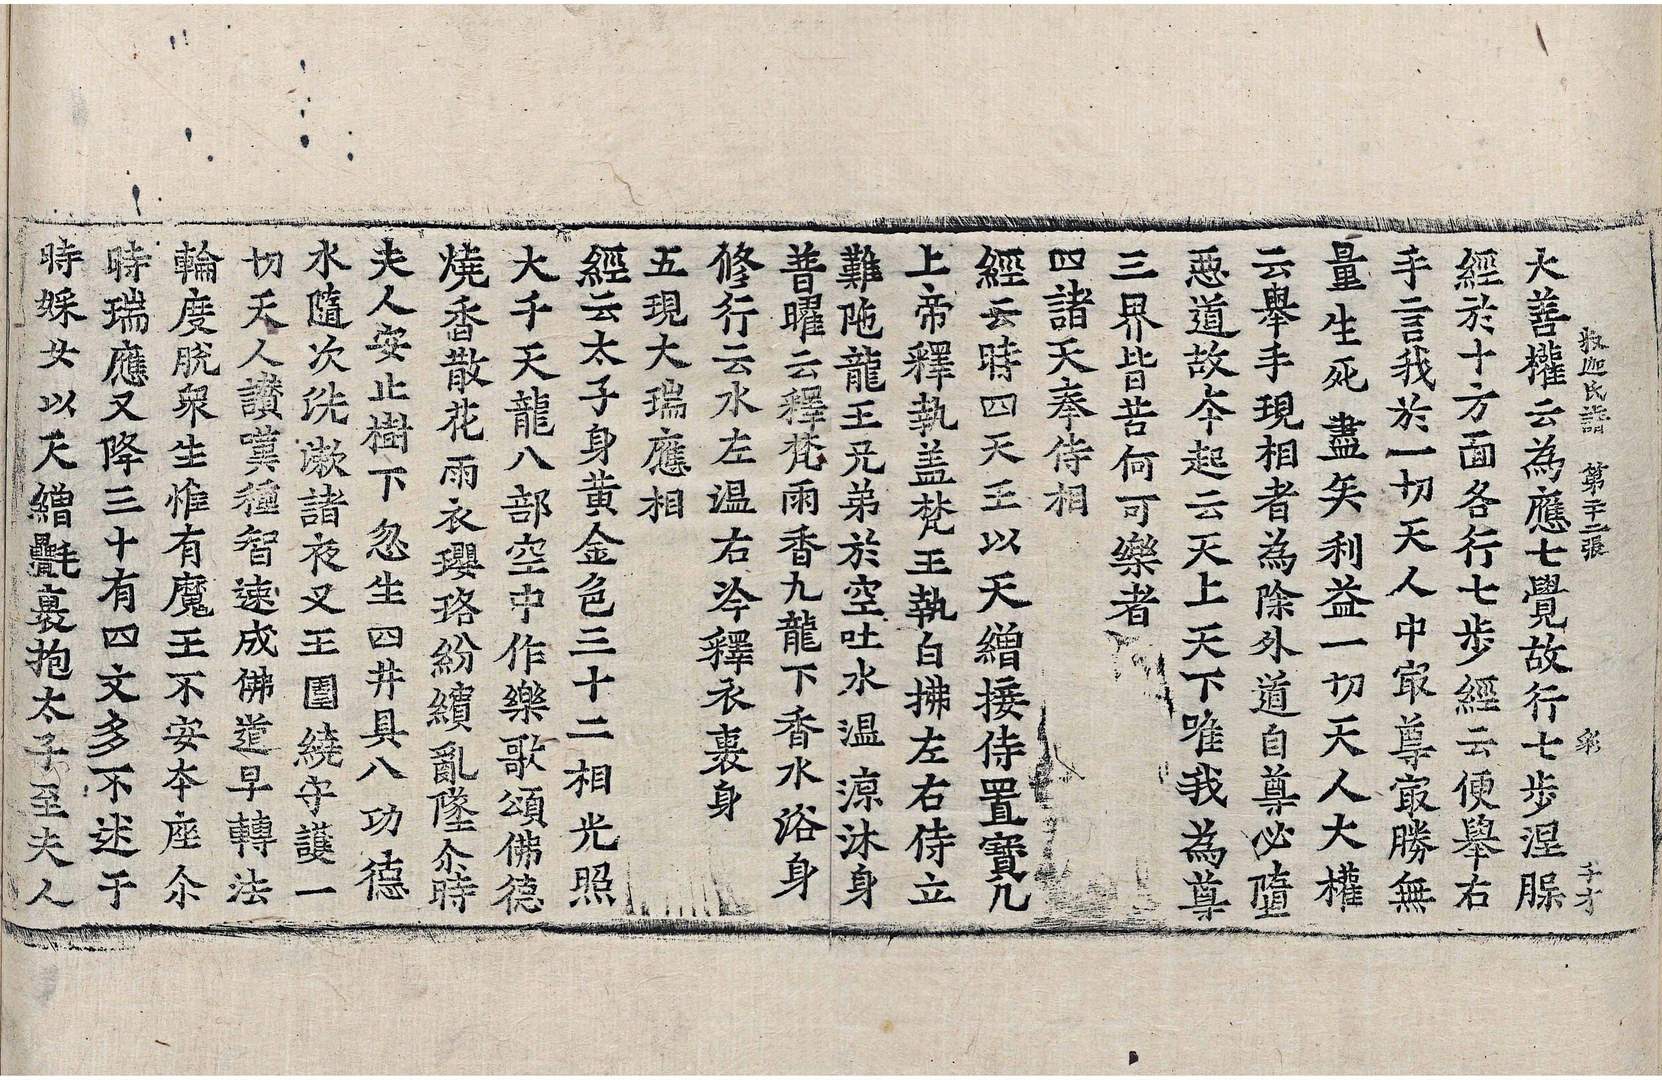 釋迦氏譜 第二十二張 彩 千才
大善權云為應七覺故行七步涅脲
經於十方面各行七步經云便舉右
手言我於一切天人中㝡尊㝡勝無
量生死盡矣利益一切天人大權
云舉手現相者為除外道自尊必墮
惡道故夲起云天上天下唯我為尊
三界皆苦何可樂者
四諸天奉侍相
經云時四天王以天繒接侍置寶几
上帝釋執盖梵王執白拂左右侍立
難陁龍王兄弟於空吐水温涼沐身
普曜云釋梵雨香九龍下香水浴身
修行云水左温右冷釋衣裹身
五現大瑞應相
經云太子身黄金色三十二相光照
大千天龍八部空中作樂歌頌佛德
燒香散花雨衣瓔珞紛繽亂墜尒時
夫人安止樹下忽生四井具八功德
水隨次洗漱諸夜叉王圍繞守護一
切天人讃嘆種智速成佛道早轉法
輪度脫衆生惟有魔王不安本座尒
時瑞應又降三十有四文多不述于
時婇女以天繒㲲裹抱太子至夫人